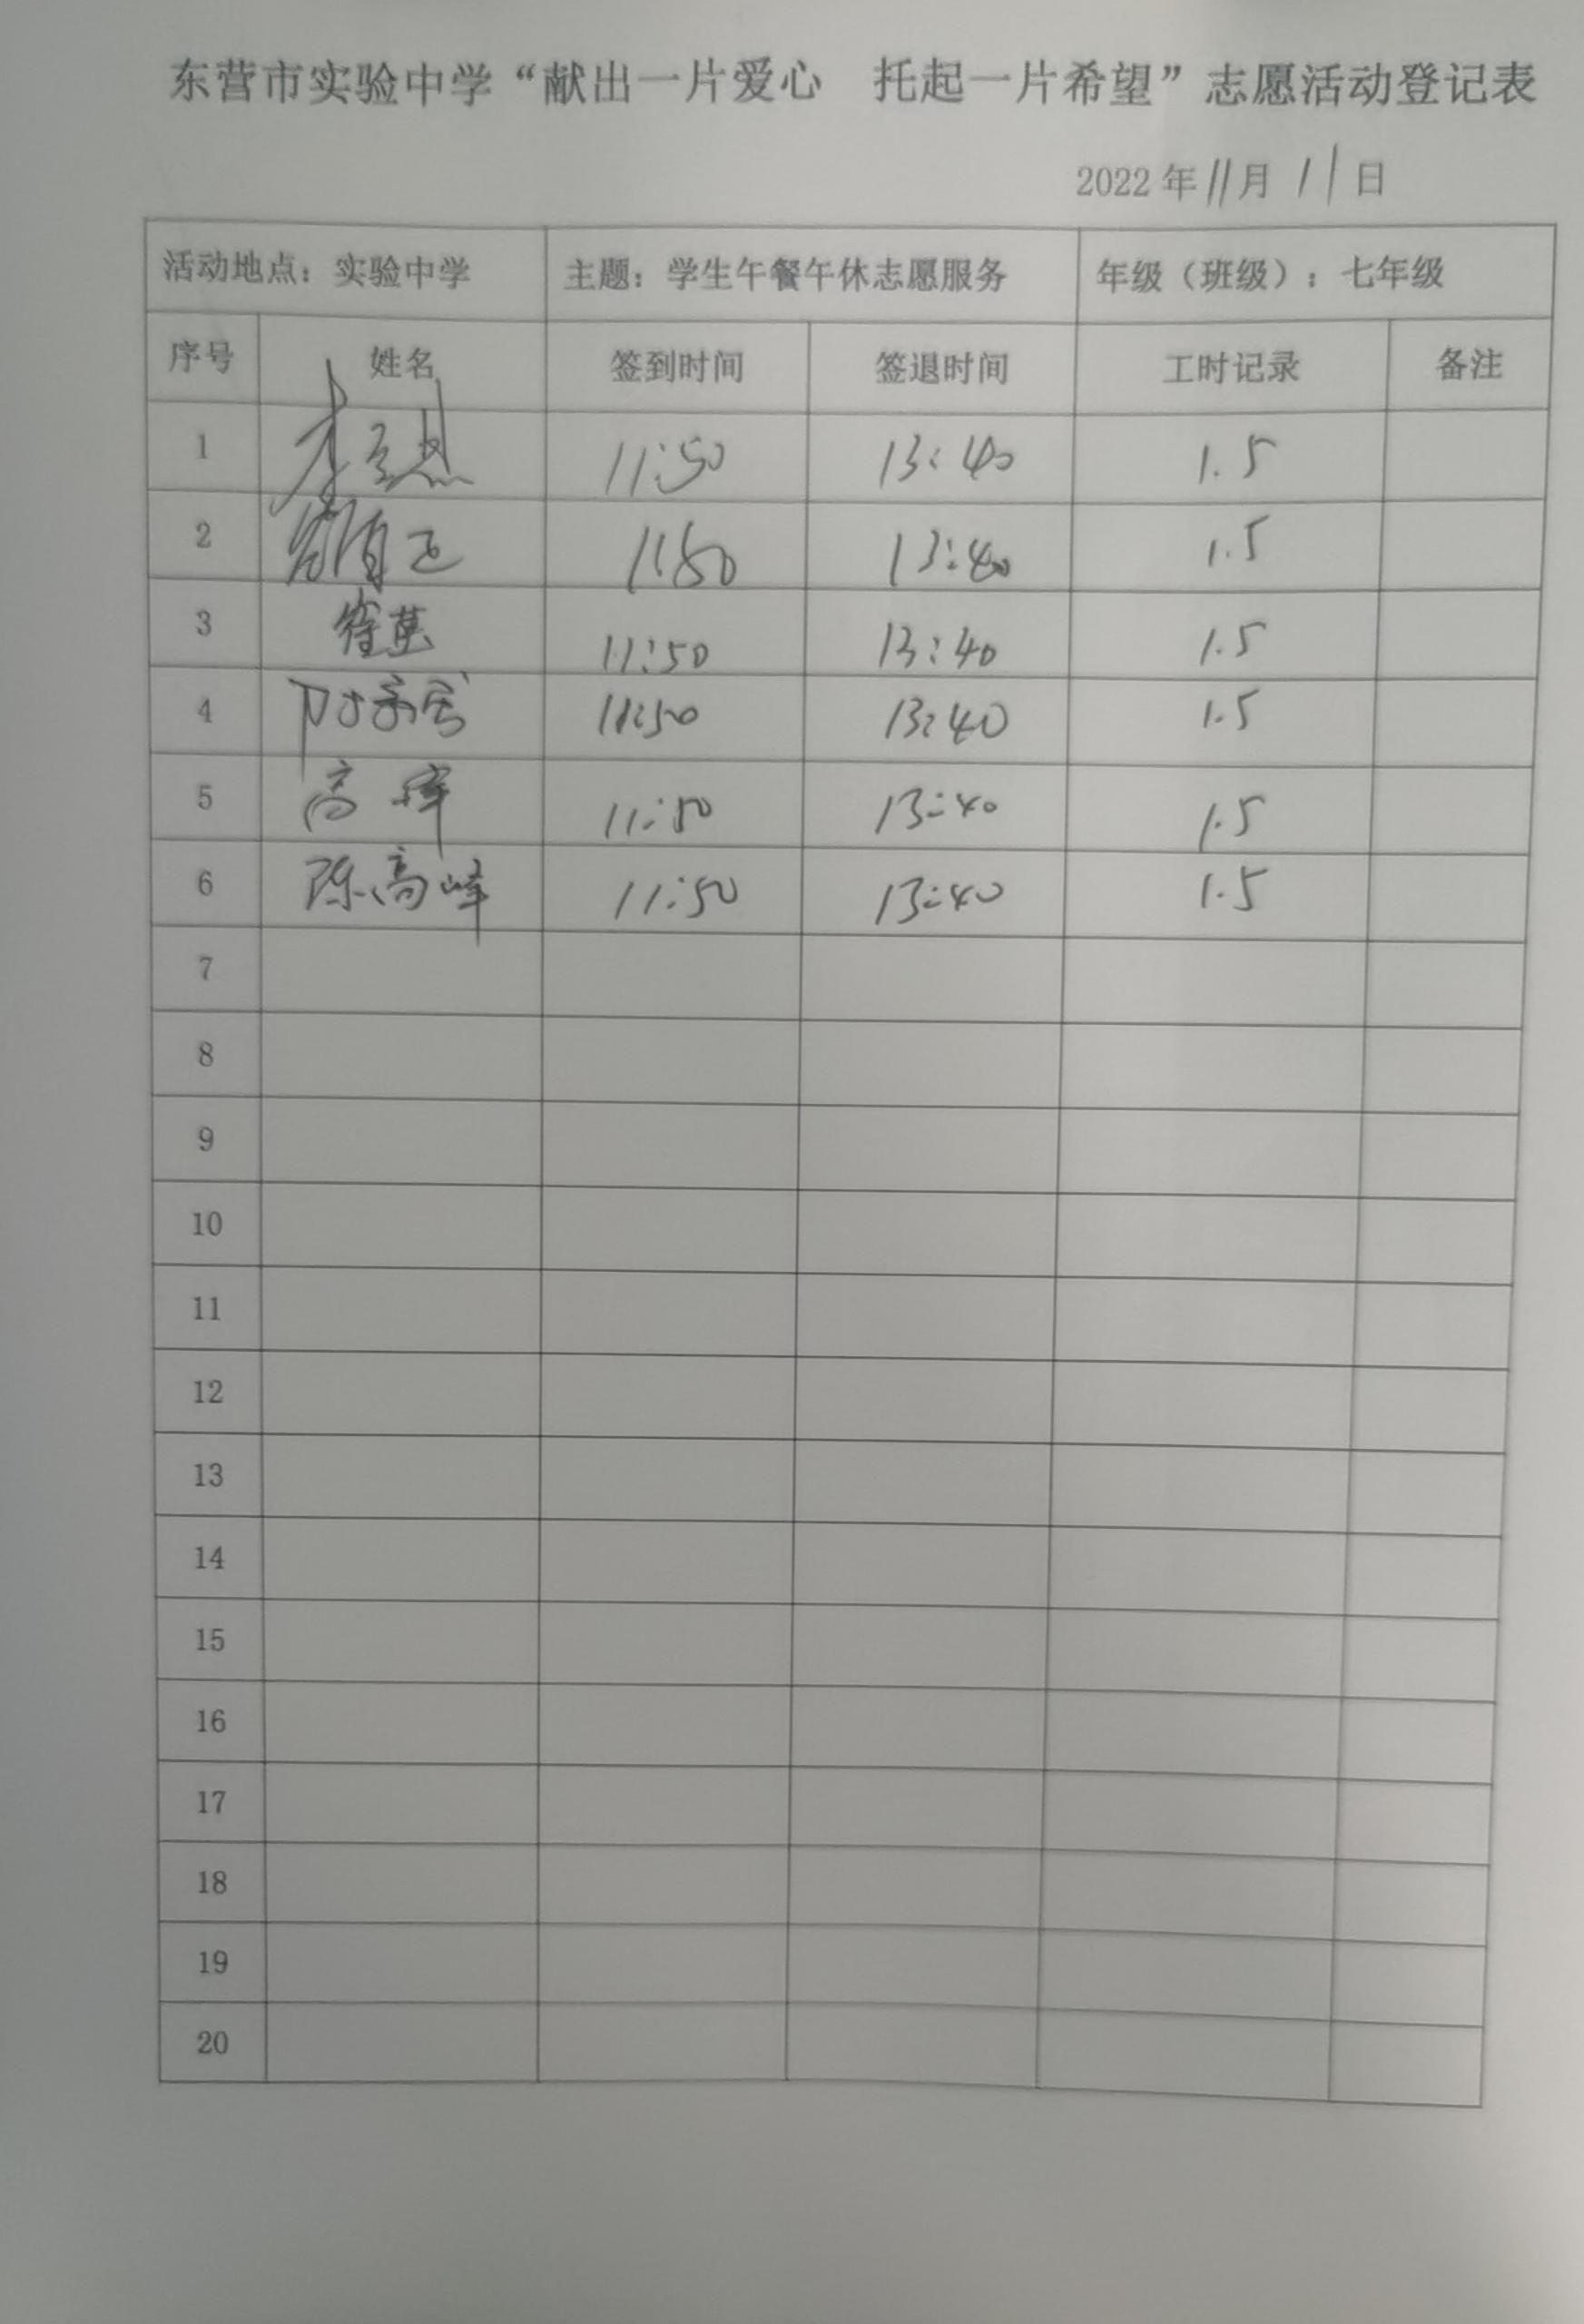 东营市实验中学“献出一片爱心 托起一片希望”志愿活动登记表
2022年11月11日
活动地点：实验中学 主题：学生午餐午休志愿服务 年级（班级）：七年级
序号 姓名 签到时间 签退时间 工时记录 备注
1 11:50 13:40 1.5
2 11:50 13:40 1.5
3 11:50 13:40 1.5
4 11:50 13:40 1.5
5 高 11:50 13:40 1.5
6 陈高峰 11:50 13:40 1.5
7
8
9
10
11
12
13
14
15
16
17
18
19
20